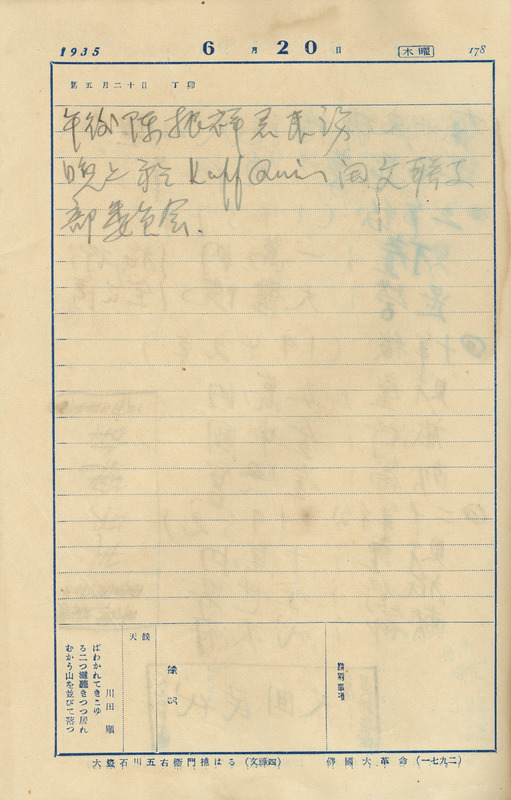 1935 6月20日 木曜 178
舊五月二十日 丁卯
午後陳振祥君来訪
晩上於 Kaff Quin 開文聯支
部委員会.
天候
川田 順
ばわかれてきこゆ
る二つ瀧聽きつつ居れ
むかう山を並びて落つ
特別事項
大盜石川五右衞門捕はる(文祿四)
佛國大革命(一七九二)